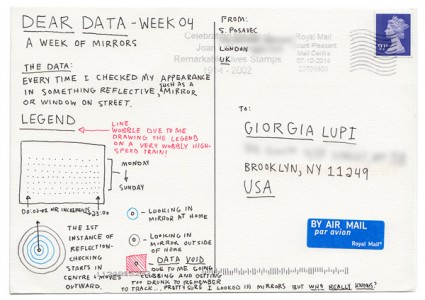 DEAR DATA - WEEK 04
A WEEK OF MIRRORS
THE DATA:
EVERY TIME I CHECKED MY APPEARANCE
IN SOMETHING REFLECTIVE, SUCH AS A MIRROR
OR WINDOW ON STREET.
LEGEND
LINE
WOBBLE DUE TO ME
DRAWING THE LEGEND
ON A VERY WOBBLY HIGH-
SPEED TRAIN!
MONDAY
SUNDAY
HR INCREMENTS
THE 1ST
INSTANCE OF
REFLECTION-
CHECKING
STARTS IN
CENTRE & MOVES
OUTWARD.
- LOOKING IN
MIRROR AT HOME
- LOOKING IN
MIRROR OUTSIDE
OF HOME
- DATA VOID
DUE TO ME GOING
CLUBBING AND GETTING
TOO DRUNK TO REMEMBER
TO TRACK... PRETTY SURE I LOOKED IN MIRRORS BUT WHO REALLY KNOWS?
FROM:
S. POSAVEC
LONDON
UK
Remarkable Lives Stamps
2002
Royal Mail
Mount Pleasant
Mail Centre
07-10-2014
TO:
GIORGIA LUPI
BROOKLYN, NY 11249
USA
BY AIR MAIL
par avion
Royal Mail